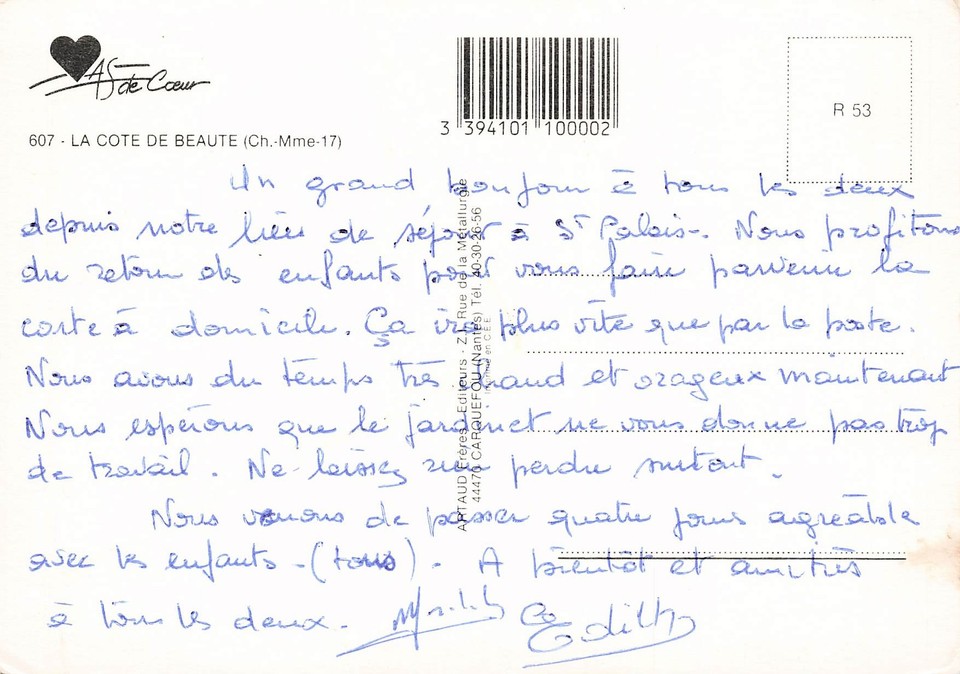 As de Cœur
3 394101 100002
R 53
607 - LA COTE DE BEAUTE (Ch.-Mme-17)
Un grand bonjour à tous les deux
depuis notre lieu de séjour à St Palais-. Nous profitons
du retour des enfants pour vous faire parvenir la
carte à domicile. Ça ira plus vite que par la poste.
Nous avons du temps très chaud et orageux maintenant
Nous espérons que le jardinet ne vous donne pas trop
de travail. Ne laissez rien perdre surtout.
Nous venons de passer quatre jours agréable
avec les enfants - (tous). A bientôt et amitiés
à tous les deux.
Edith
ARTAUD Frères Editeurs - Z.I. Rue de la Métallurgie
44470 CARQUEFOU (Nantes) Tél. 40-30-26-56